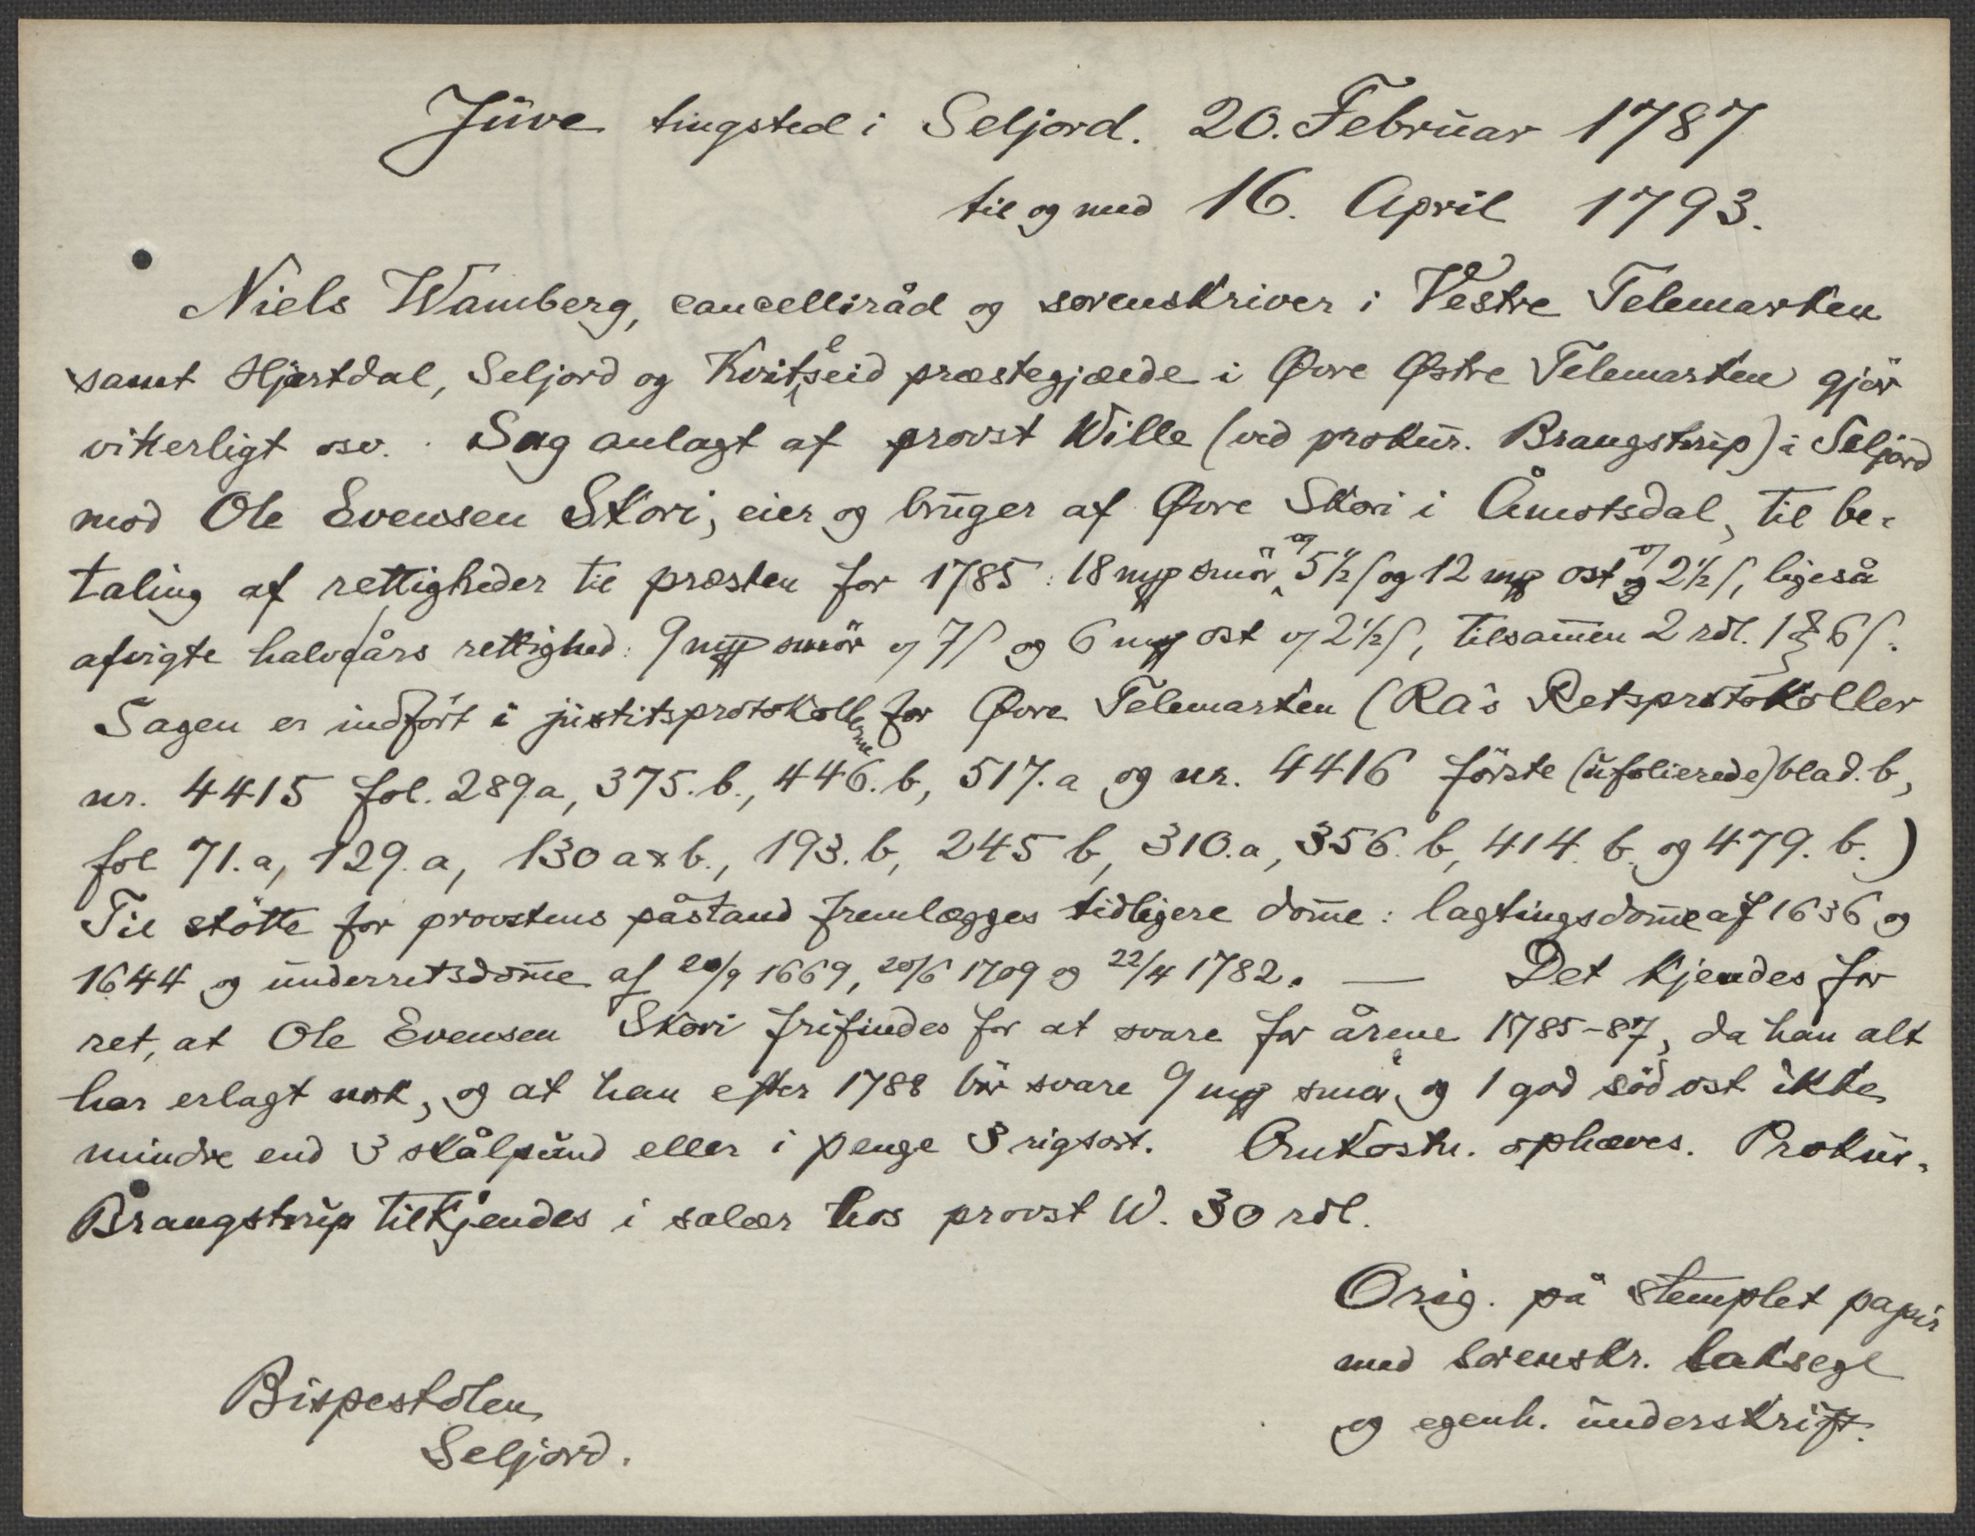 Juve tingsted i Seljord. 20. Februar 1787
til og med 16. April 1793.
Niels Wamberg, cancelliråd og sorenskriver i Vestre Telemarken
samt Hjertdal, Seljord og Kviteseid præstegjælde i Øvre Østre Telemarken gjör
vitterligt osv. Sag anlagt af provst Wille (ved prokur. Brangstrup) i Seljord
mod Ole Evensen Skori, eier og bruger af Øvre Skori i Åmotsdal, til be-
taling af rettigheder til præsten for 1785: 18 mp smör og 5½ ſ og 12 mp ost og 2½ ſ, ligeså
afvigte halvårs rettighed: 9 mp smör og 7 ſ og 6 mp ost og 2½ ſ, tilsam̄en 2 rdl. 1 ℥ 6 ſ.
Sagen er indfört i justitsprotokollerne for Øvre Telemarken (Ra's Retsprotokoller
nr. 4415 fol. 289a, 375.b., 446.b, 517.a og nr. 4416 förste (ufolierede) blad.b,
fol 71.a, 129.a, 130 a & b., 193.b, 245 b, 310.a, 356.b, 414.b. og 479.b.)
Til stötte for provstens påstand fremlægges tidligere dom̄e: lagtingsdom̄e af 1636 og
1644 og underretsdom̄e af 20/9 1669, 20/6 1709 og 22/4 1782. — Det kjendes for
ret, at Ole Evensen Skori frifindes for at svare for årene 1785-87, da han alt
har erlagt nok, og at han efter 1788 bör svare 9 mp smör og 1 god söd ost ikke
mindre end 3 skålpund eller i penge 3 rigsort. Omkostn. ophæves. Prokur.
Brangstrup tilkjendes i salær hos provst W. 30 rdl.
Orig. på stemplet papir
med sorenskr. laksegl
og egenh. underskrift.
Bispestolen
Seljord.